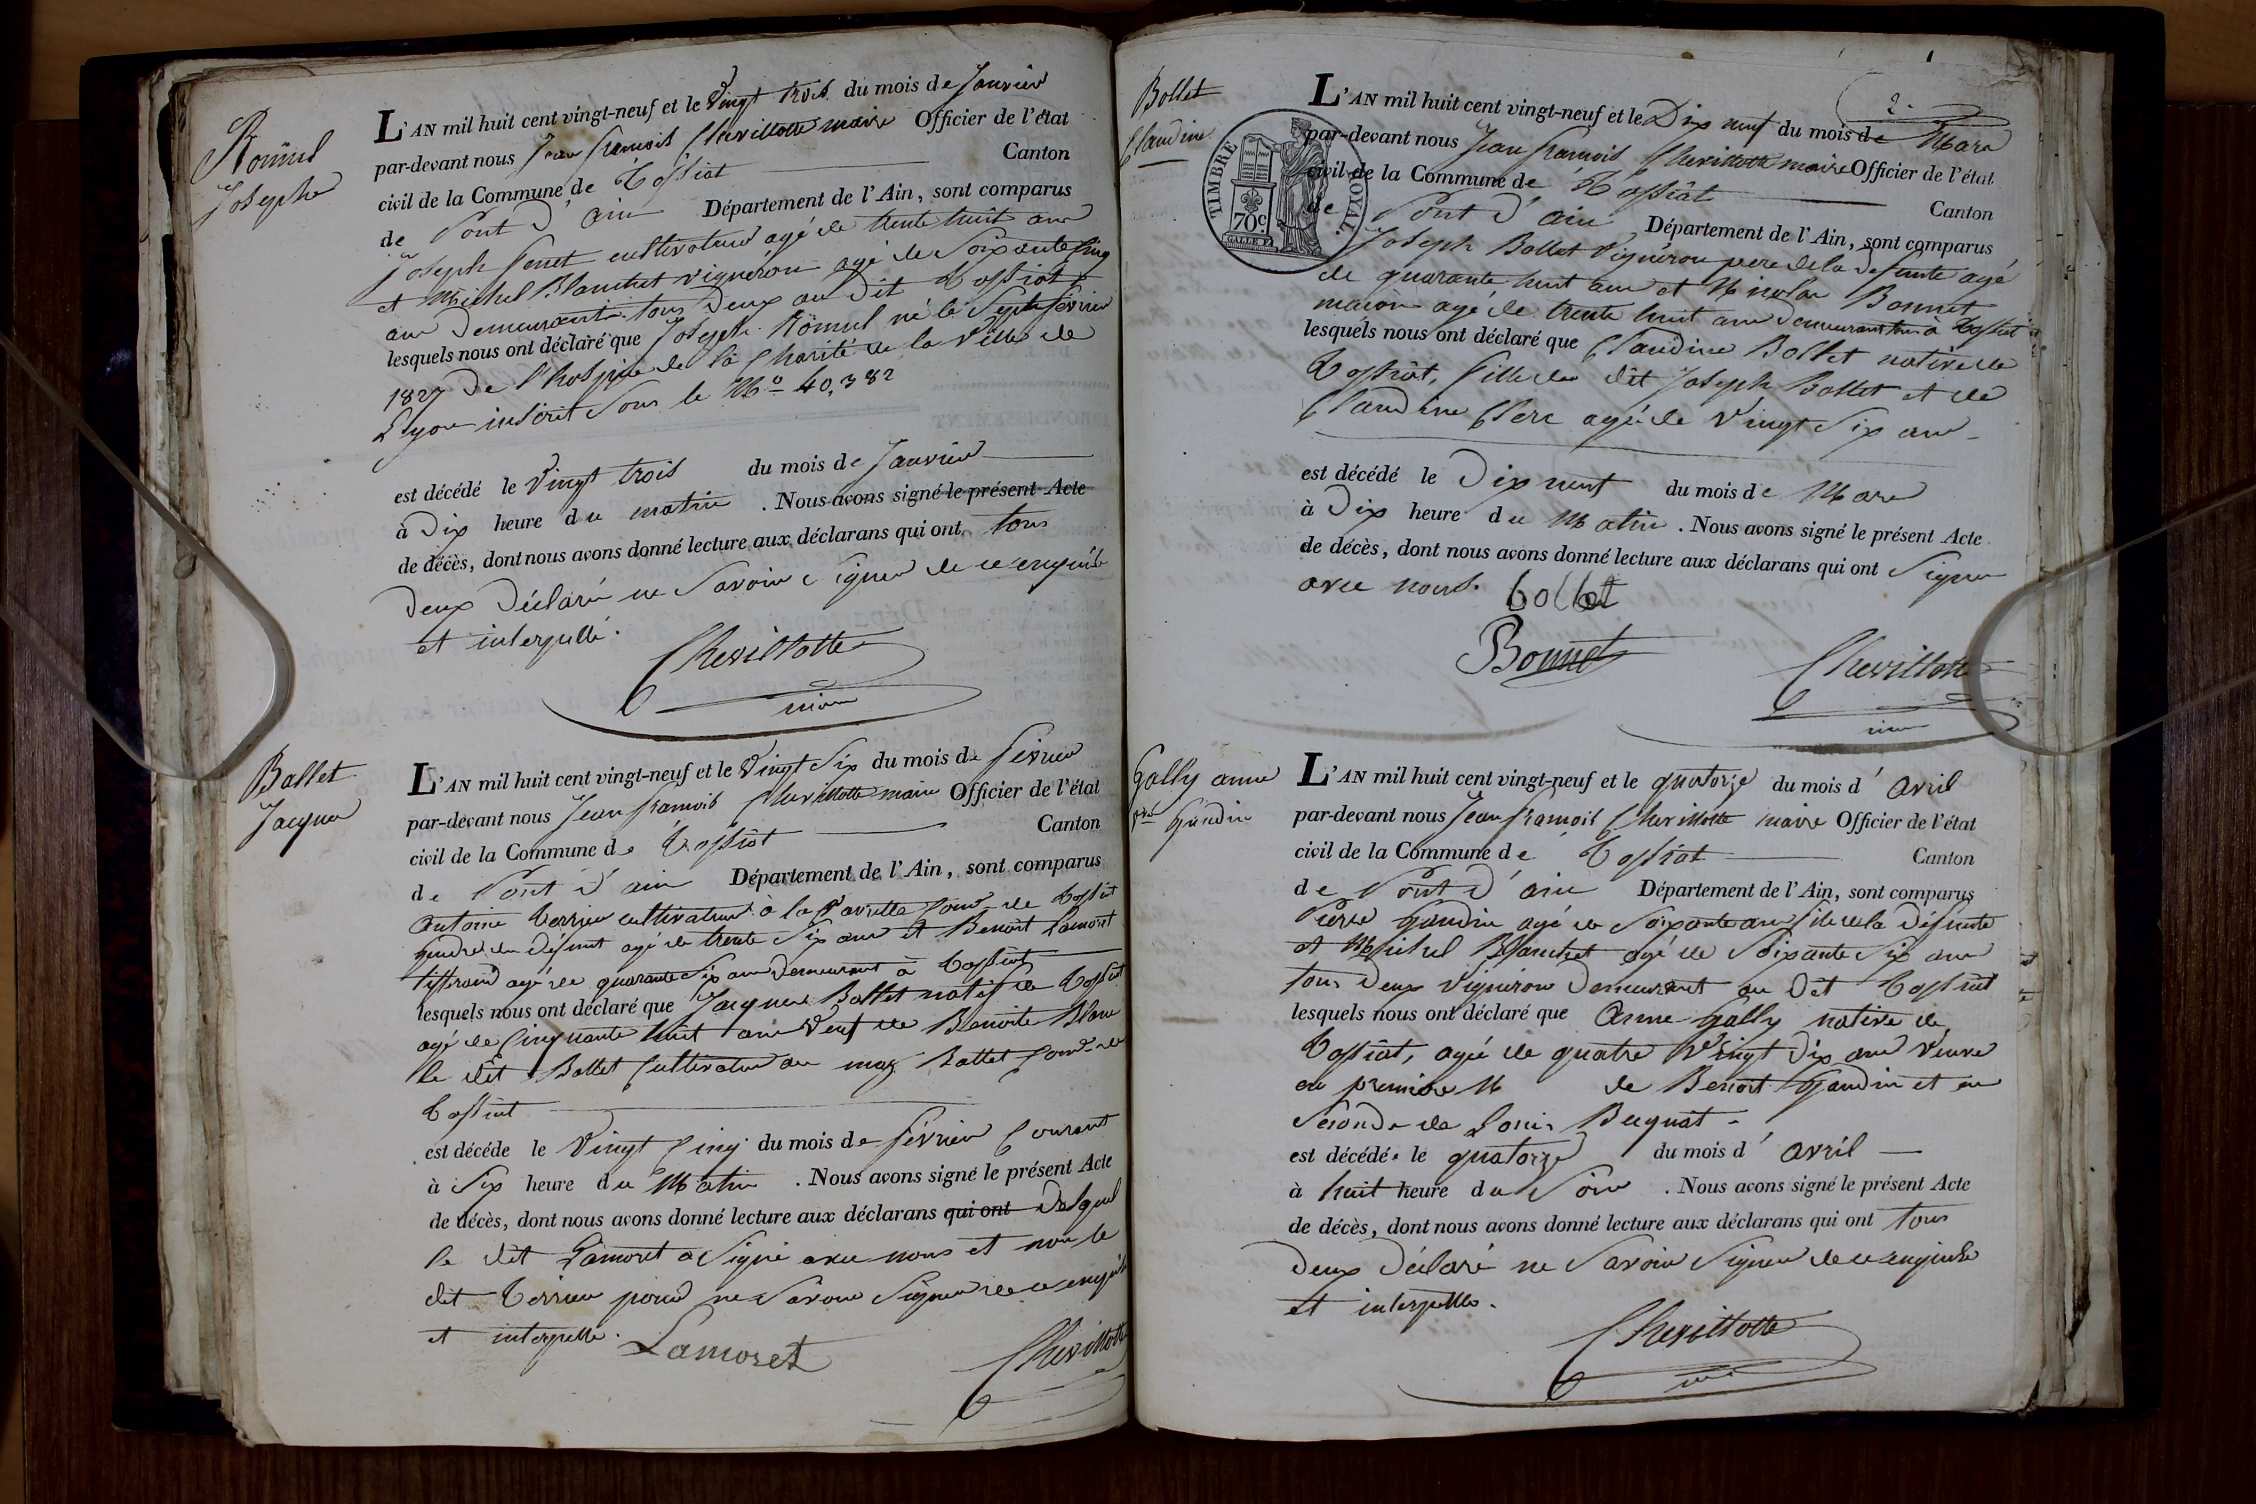 Romul
Joseph
L'AN mil huit cent vingt-neuf et le Vingt trois du mois de Janvier
par-devant nous Jean francois Chevillotte maire Officier de l'état
civil de la Commune de Tossiat Canton
de Pont d'ain Département de l'Ain, sont comparus
Joseph cultivateur agé de trente huit ans
et Michel Blanchet vigneron agé de Soixante Cinq
ans Demeurants tous Deux au Dit Tossiat
lesquels nous ont déclaré que Joseph Romul né le Sept fevrier
1827 De l'hospice de la Charité de la Ville de
Lyon inscrit Sous le No 40,382
est décédé le Vingt trois du mois de Janvier
à Dix heure du matin . Nous avons signé le présent Acte
de décès, dont nous avons donné lecture aux déclarans qui ont tous
Deux Déclaré ne Savoir Signer de ce enquis
et interpellé.
Chevillotte
maire
Ballet
Jacques
L'AN mil huit cent vingt-neuf et le Vingt Six du mois de fevrier
par-devant nous Jean francois Chevillotte maire Officier de l'état
civil de la Commune de Tossiat Canton
de Pont d'ain Département de l'Ain, sont comparus
Antoine Terrier cultivateur à la de Tossiat
Gendre du Défunt agé de trente Six ans et Benoit Lamoret
tisserand agé de quarante Six ans Demeurant à Tossiat
lesquels nous ont déclaré que Jacques Ballet natif de Tossiat
agé de Cinquante huit ans Veuf de Benoite Blanc
le dit Ballet Cultivateur au mas Ballet de
Tossiat
est décédé le Vingt Cinq du mois de février Courant
à Six heure du Matin . Nous avons signé le présent Acte
de décès, dont nous avons donné lecture aux déclarans qui ont Desquel
le dit Lamoret a Signé avec nous et non le
dit Terrier pour ne Savoir Signer de ce enquis
et interpellé.
Lamoret
Chevillotte
2.
Bollet
Claudine
TIMBRE ROYAL
70c.
L'AN mil huit cent vingt-neuf et le Dix neuf du mois de Mars
par-devant nous Jean francois Chevillotte maire Officier de l'état
civil de la Commune de Tossiat Canton
de Pont d'ain Département de l'Ain, sont comparus
Joseph Bollet Vigneron pere de la Defunte agé
de quarante huit ans et Nicolas Bonnet
macon agé de trente huit ans Demeurant tous à Tossiat
lesquels nous ont déclaré que Claudine Bollet native de
Tossiat, fille du dit Joseph Bollet et de
Claudine Clerc agé de Vingt Six ans
est décédé le Dix neuf du mois de Mars
à Dix heure du Matin . Nous avons signé le présent Acte
de décès, dont nous avons donné lecture aux déclarans qui ont Signer
avec nous. bollet
Bonnet
Chevillotte
maire
Gally anne
Gaudin
L'AN mil huit cent vingt-neuf et le quatorze du mois d'avril
par-devant nous Jean francois Chevillotte maire Officier de l'état
civil de la Commune de Tossiat Canton
de Pont d'ain Département de l'Ain, sont comparus
Pierre Gaudin agé de Soixante ans fils de la Défunte
et Michel Blanchet agé de Soixante Six ans
tous Deux Vigneron Demeurant au Dit Tossiat
lesquels nous ont déclaré que Anne Gally native de
Tossiat, agée de quatre Vingt Dix ans Veuve
en premiere N de Benoit Gaudin et en
Seconde de Louis Becquat
est décédée le quatorze du mois d'avril
à huit heure du Soir . Nous avons signé le présent Acte
de décès, dont nous avons donné lecture aux déclarans qui ont tous
Deux Déclaré ne Savoir Signer de ce enquis
et interpellés.
Chevillotte
maire